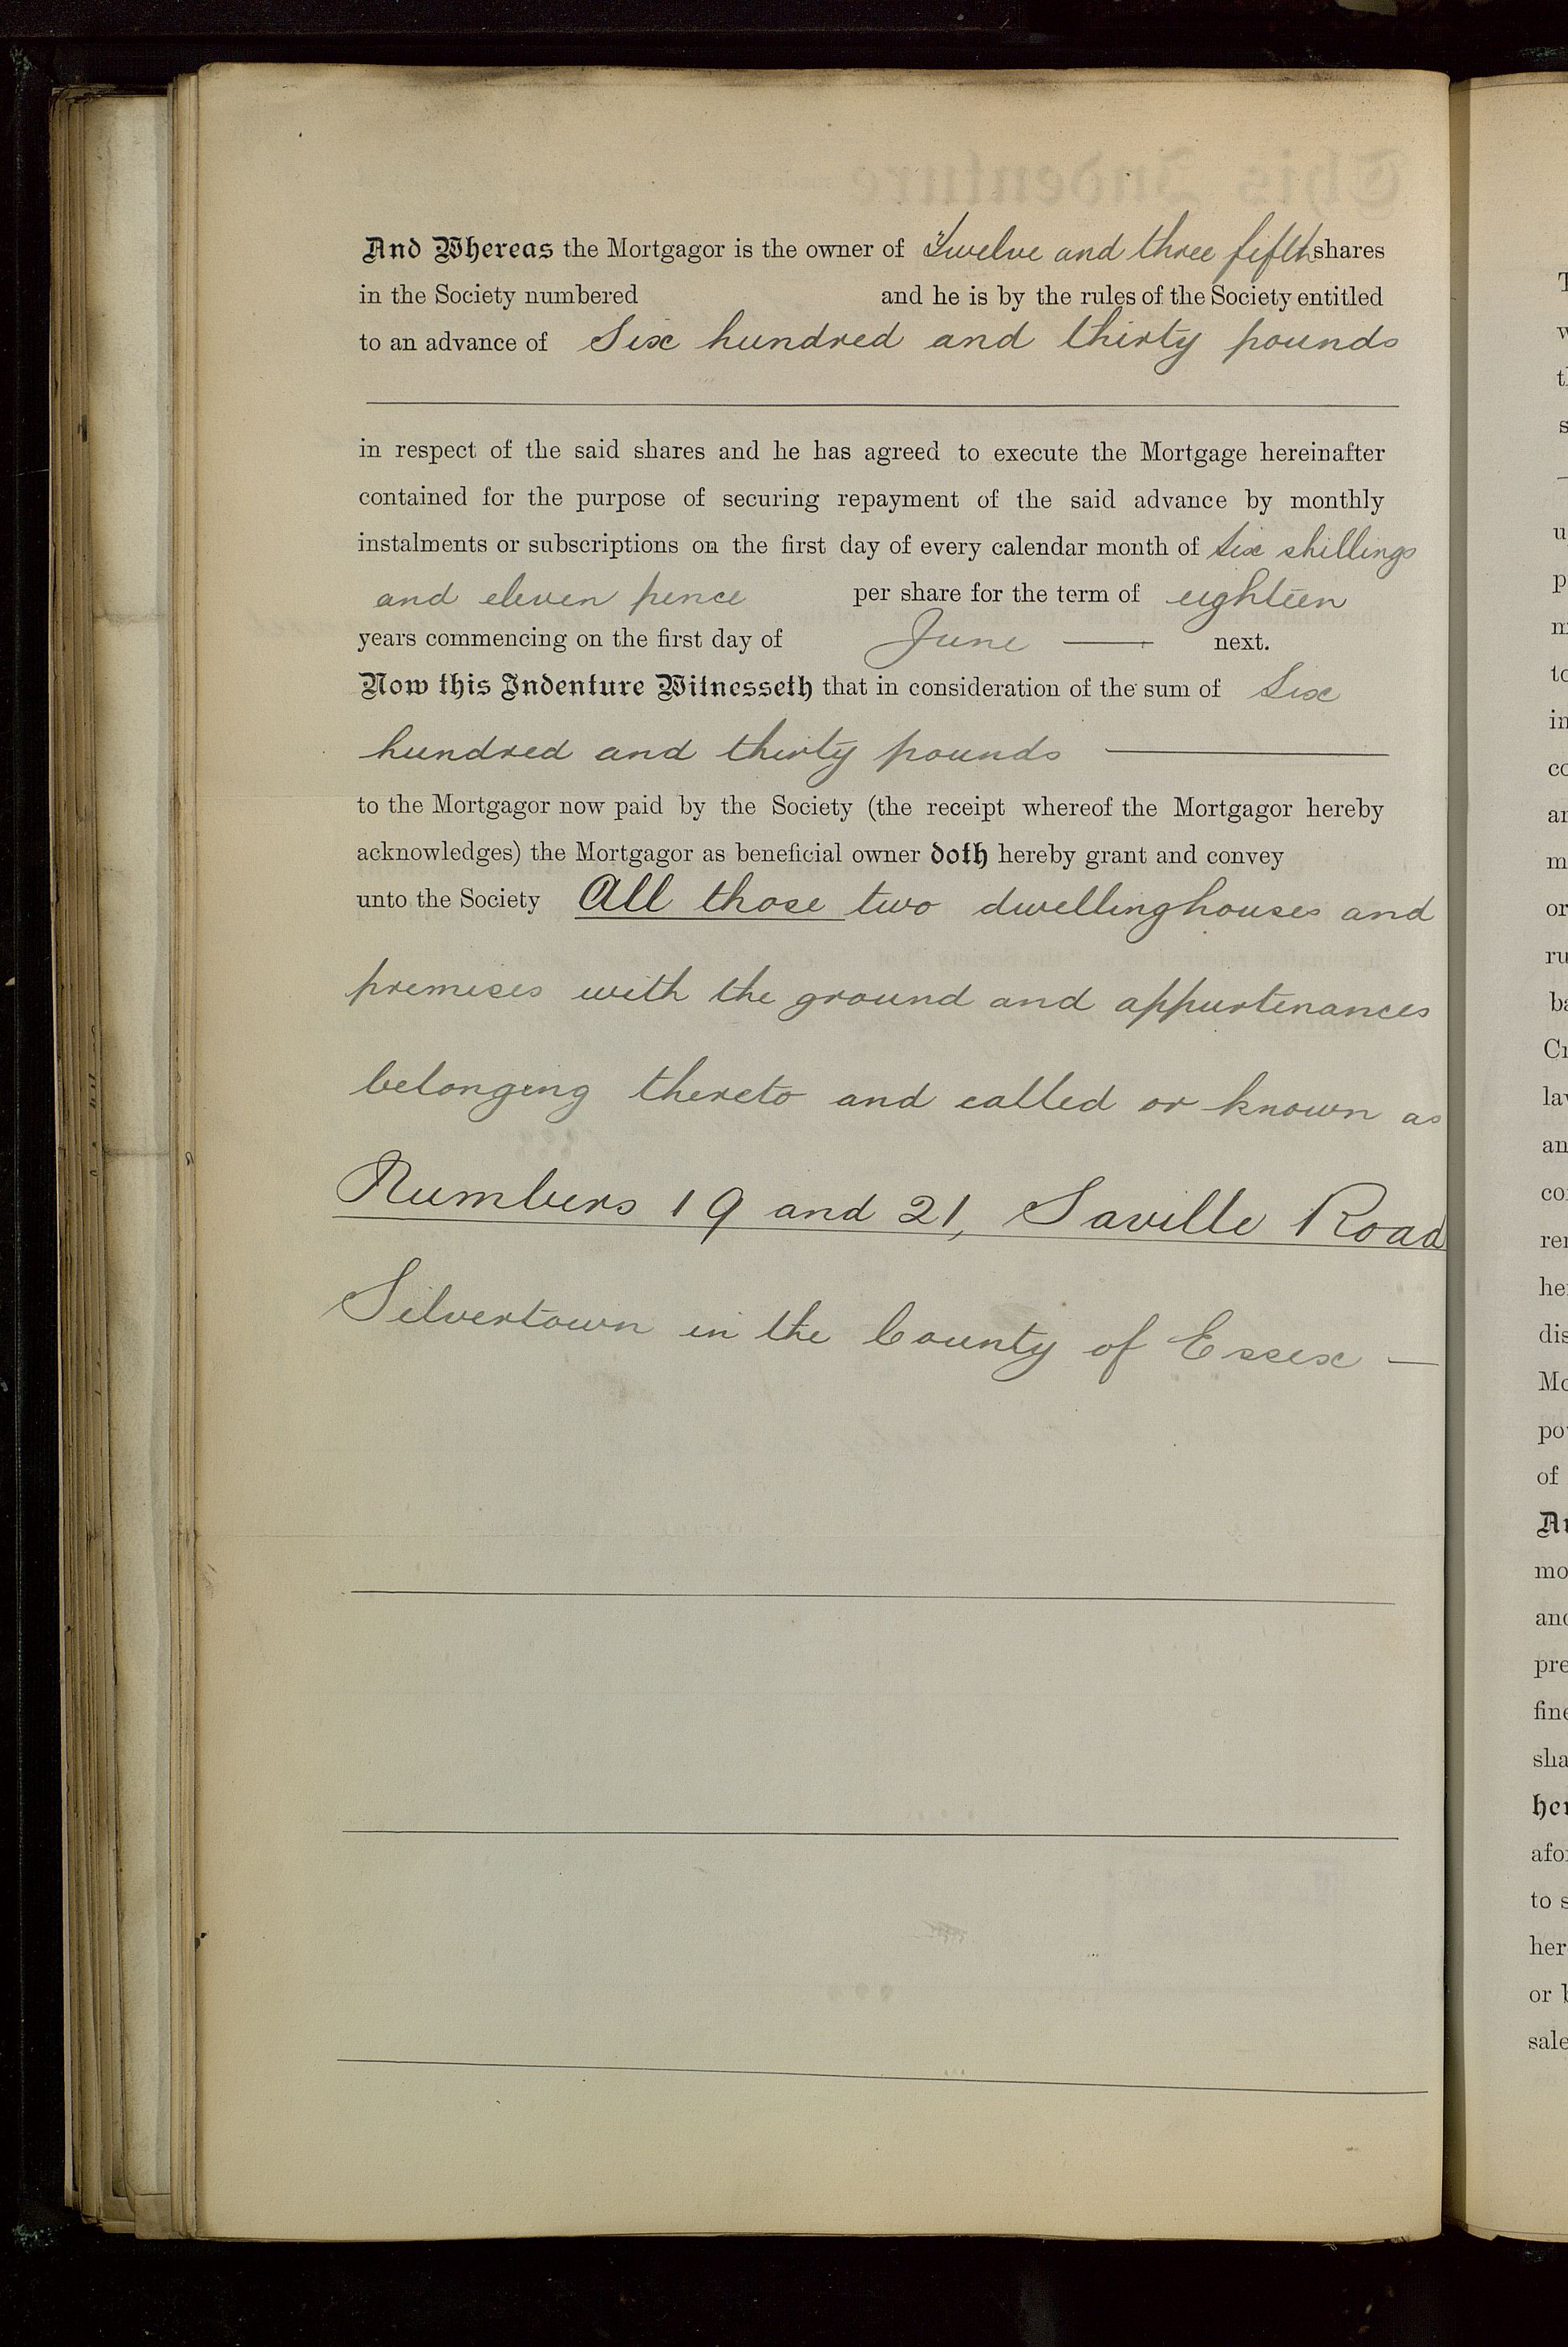 And Whereas the Mortgagor is the owner of Twelve and three fifth shares
in the Society numbered and he is by the rules of the Society entitled
to an advance of Six hundred and thirty pounds
in respect of the said shares and he has agreed to execute the Mortgage hereinafter
contained for the purpose of securing repayment of the said advance by monthly
instalments or subscriptions on the first day of every calendar month of six shillings
and eleven pence per share for the term of eighteen
years commencing on the first day of June — next.
Now this Indenture Witnesseth that in consideration of the sum of Six
hundred and thirty pounds —
to the Mortgagor now paid by the Society (the receipt whereof the Mortgagor hereby
acknowledges) the Mortgagor as beneficial owner doth hereby grant and convey
unto the Society All those two dwellinghouses and
premises with the ground and appurtenances
belonging thereto and called or known as
Numbers 19 and 21, Saville Road
Silvertown in the County of Essex —